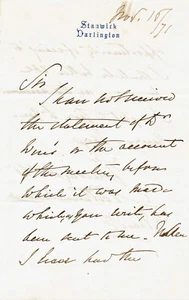 Stanwick
Darlington
Nov. 16/71
Sir
I have not received
the statement of Dr
or the account
of the meeting before
which it was made
which, you write, has
been sent to me.
I have had the